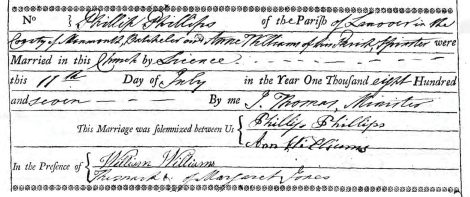 No Phillip Phillips of the Parish of Lanover in the
County of Monmouth, Batchelor and Anne Williams of this Parish, Spinster were
Married in this Church by Licence
this 11th Day of July in the Year One Thousand eight Hundred
and seven By me J. Thomas, Minister
This Marriage was solemnized between Us Phillip Phillips
Ann Williams
In the Presence of William Williams
The mark of Margaret Jones